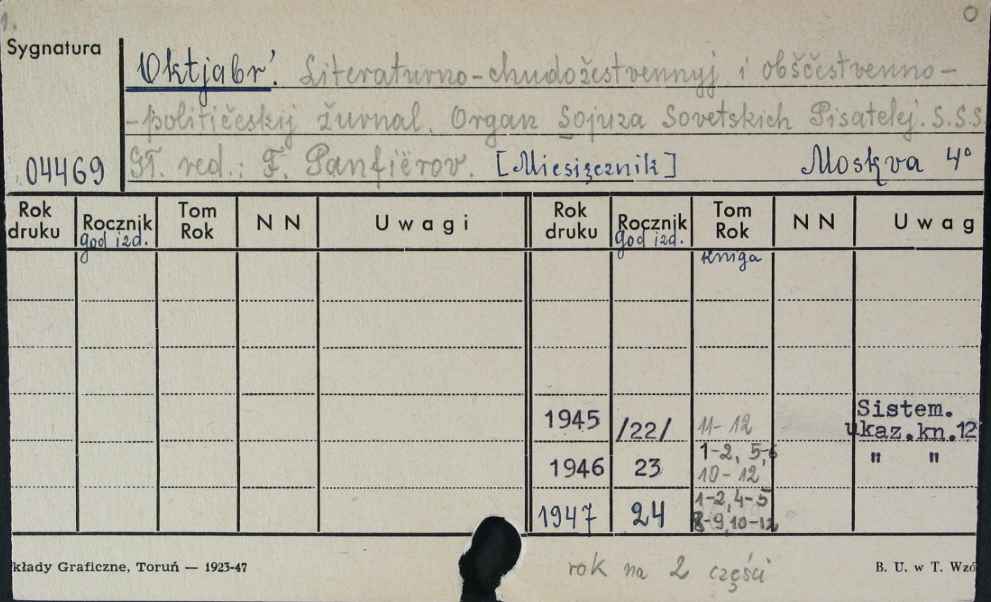 1.
Sygnatura
Oktjabr'. Literaturno-chudožestvennyj i obščestvenno-
-političeskij žurnal. Organ Sojuza Sovetskich Pisatelej. S.S.S.
04469 Gł. red.: F. Panfiërov. [Miesięcznik] Moskva 4°
Rok druku Rocznik god izd. Tom Rok N N Uwagi Rok druku Rocznik god izd. Tom Rok kniga N N Uwag
1945 /22/ 11-12 Sistem. ukaz.kn.12
1946 23 1-2, 5-6 10-12 " "
1947 24 1-2, 4-5 8-9, 10-12
kłady Graficzne, Toruń — 1923-47 rok na 2 części B. U. w T. Wzó